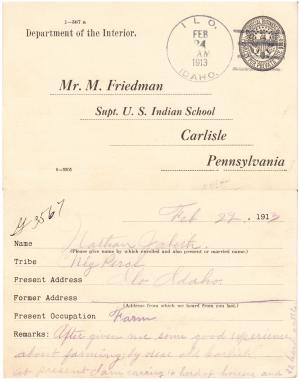 1-567 a
Department of the Interior.
ILO,
FEB
24
AM
1913
IDAHO.
Mr. M. Friedman
Supt. U. S. Indian School
Carlisle
Pennsylvania
Feb 22, 1913
Name
(Please give name by which enrolled and also present or married name.)
Tribe Nez Perce
Present Address Ilo Idaho.
Former Address
(Address from which we heard from you last.)
Present Occupation Farm
Remarks: After given me some good experience
about farming by
at present I am caring to herd of horses and